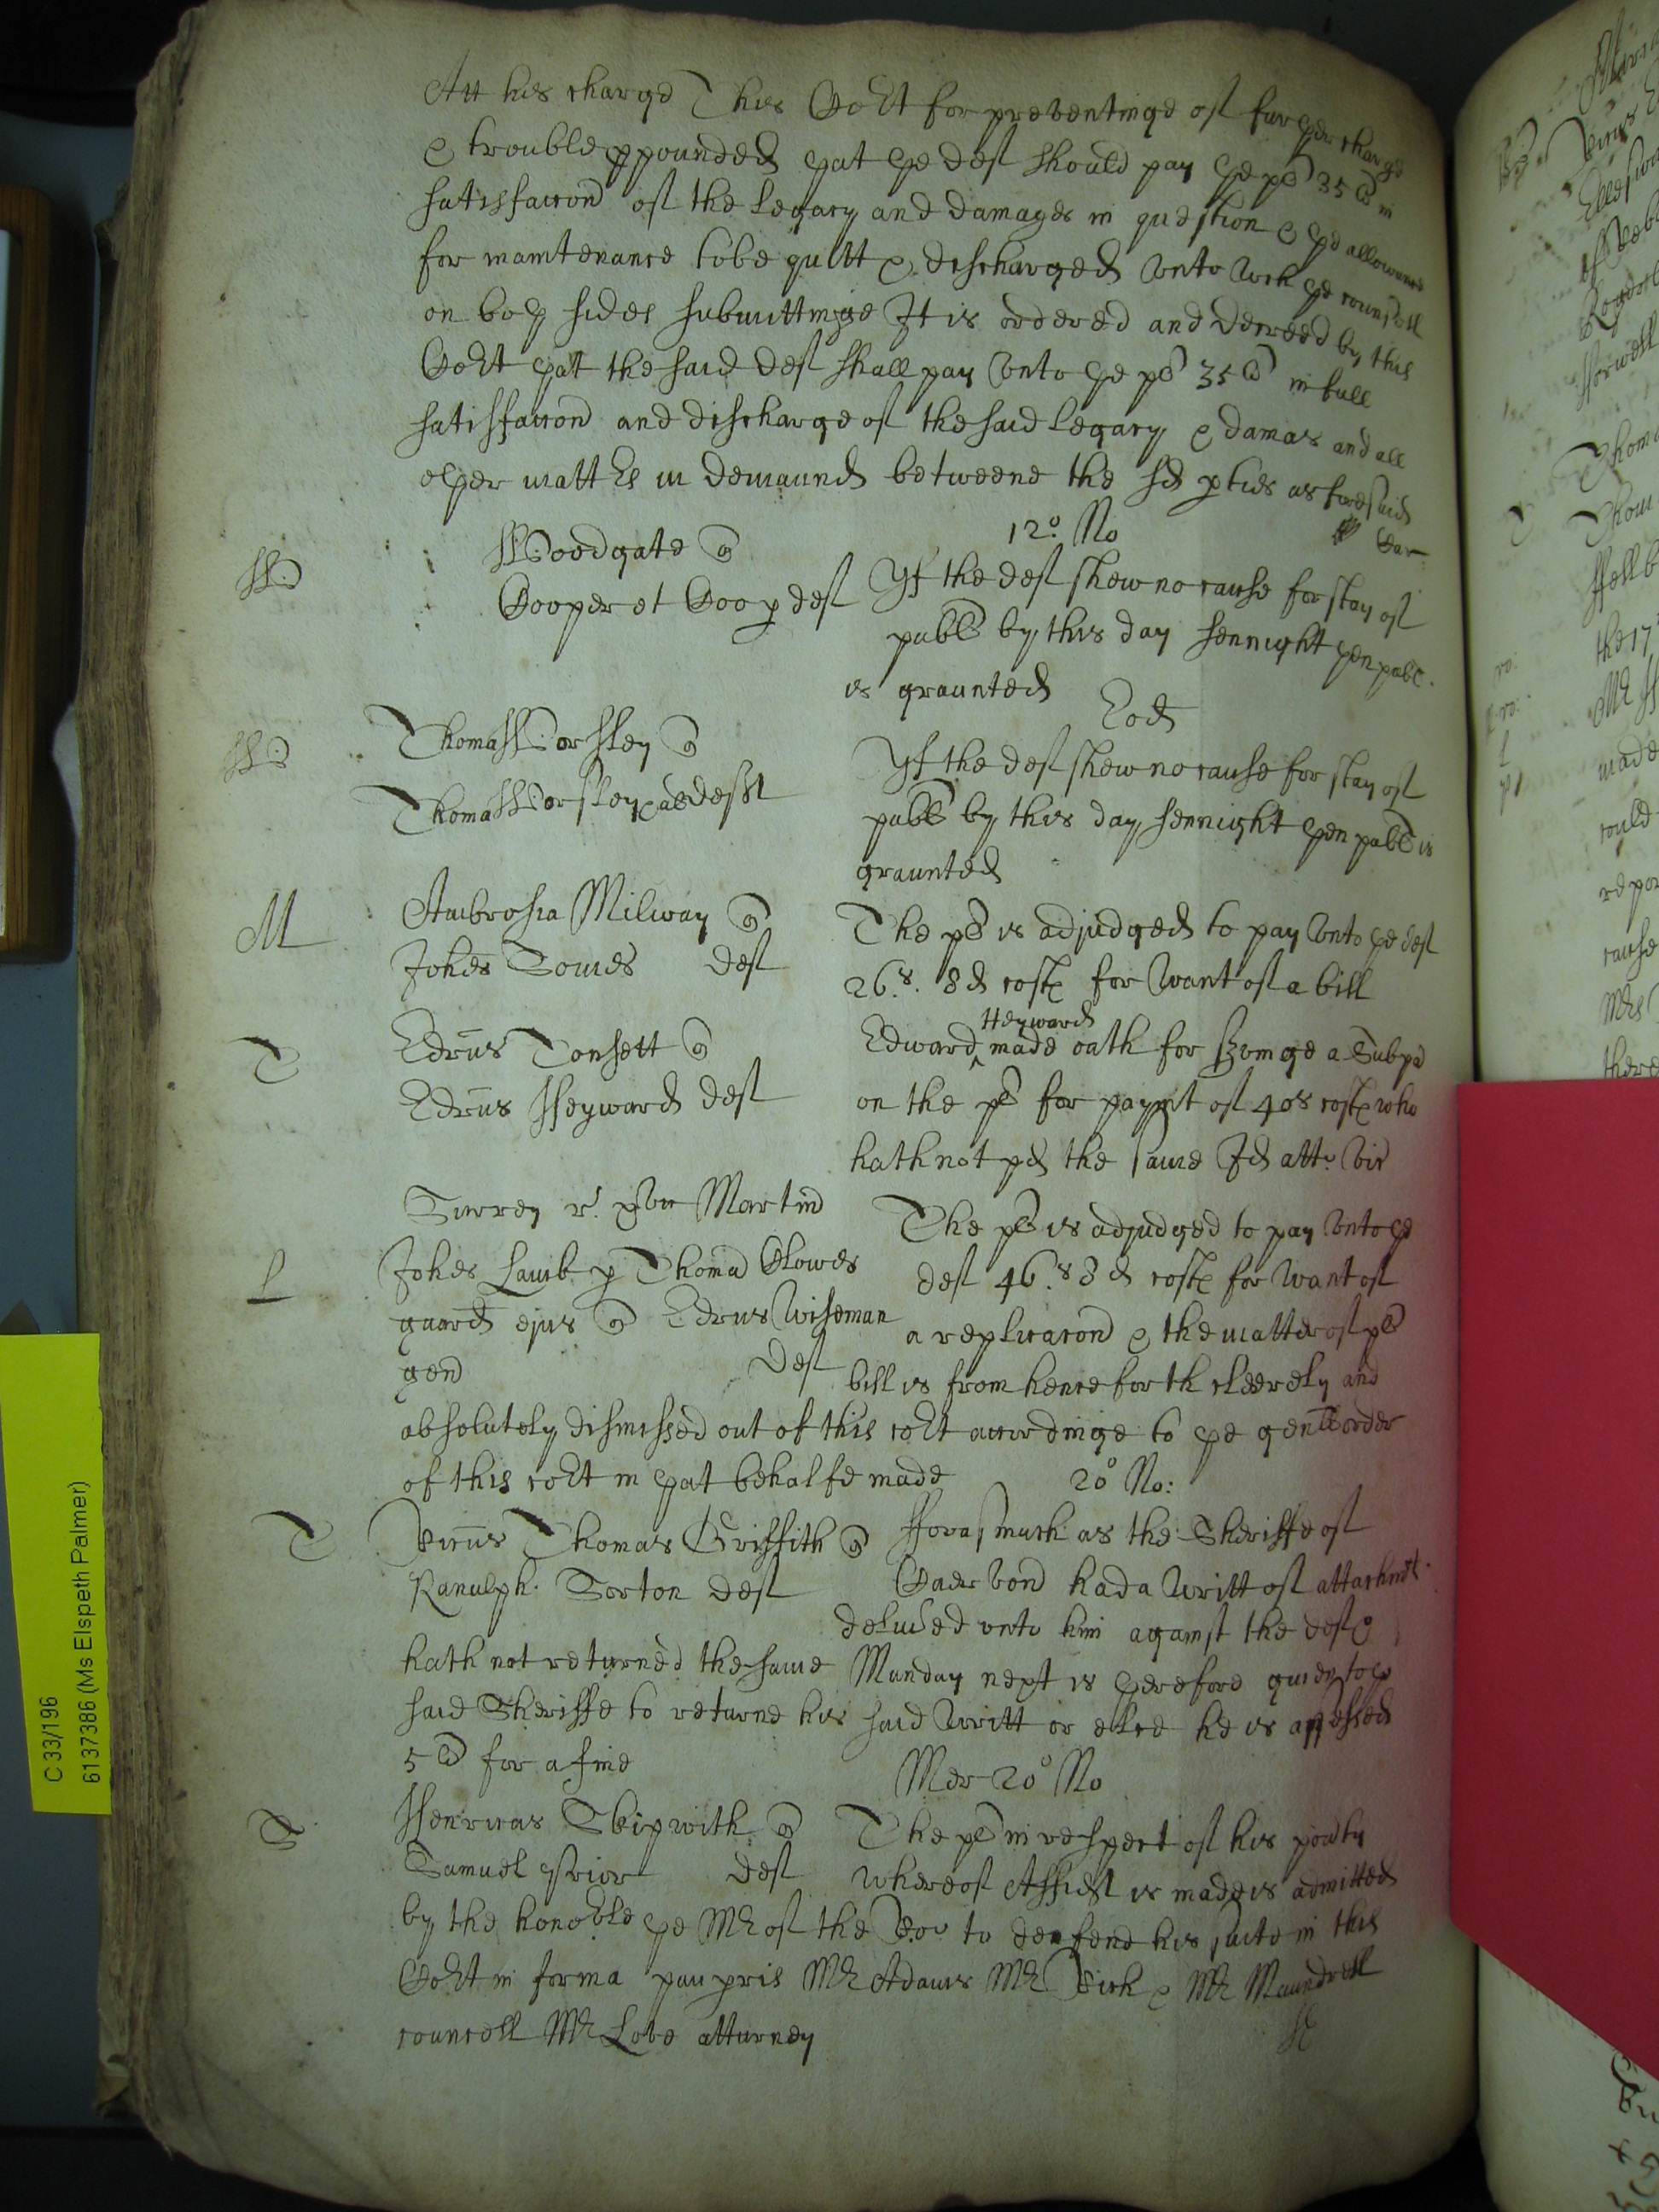 Att his charge This Co:rt for preventinge of further charge
& trouble ppounded that the def should pay the plt 35 li in
satisfaccon of the Legacy and damages in question & the allowance
for maintenance to be quitt & discharged unto wch the counsell
on both sides submittinge It is ordered and decreed by this
Co:rt that the said def shall pay unto the plt 35 li in full
satisfaccon and discharge of the said Legacy & damas and all
other matters in demaund betweene the sd pties as foresaid
12:o No
W Woodgate q
Cooper et Coop def Yf the def shew no cause for stay of
publ by this day sennight then publ.
is graunted Eod
W Thomas Worsley q
Thomas Worsley & al def Yf the def shew no cause for stay of
publ by this day sennight then publ is
graunted
M Ambrosia Milway q The plt is adjudged to pay unto the def
Johes Tomes def 26.s. 8d costs for want of a bill
Heyward
T Edrus Tonsett q Edward made oath for servinge a Subpa
Edrus Heyward def on the plt for paymt of 40s costs who
hath not pd the same Id atto: vic
Surrey r. p bre Martin
L Johes Lamb p Thoma Clowes The plt is adjudged to pay unto the
guard ejus q Edrus Wiseman def 46.s 8d costs for want of
gen def a replicacon & the matter of plt
bill is from henceforth cleerely and
absolutely dismissed out of this co:rt accordinge to the gen:all order
of this co:rt in that behalfe made 20o No:
Thomas Griffith q Forasmuch as the Sheriffe of
Ranulph. Torton def Caervon had a writt of attachmt.
delivered unto him against the def &
hath not returned the same Munday next is therefore given to the
said Sheriffe to returne his said writt or else he is assessed
5 li for a fine Mer 20o No
S Henricus Skipwith q The plt in respect of his povrty
Samuel Prior def whereof Affidt is made is admitted
by the honoble the Mr of the to defend his suite in this
Co:rt in forma paupris Mr Adams Mr & Mr Maundrell
councell Mr Love atturney
C 33/196
6137386 (Ms Elspeth Palmer)